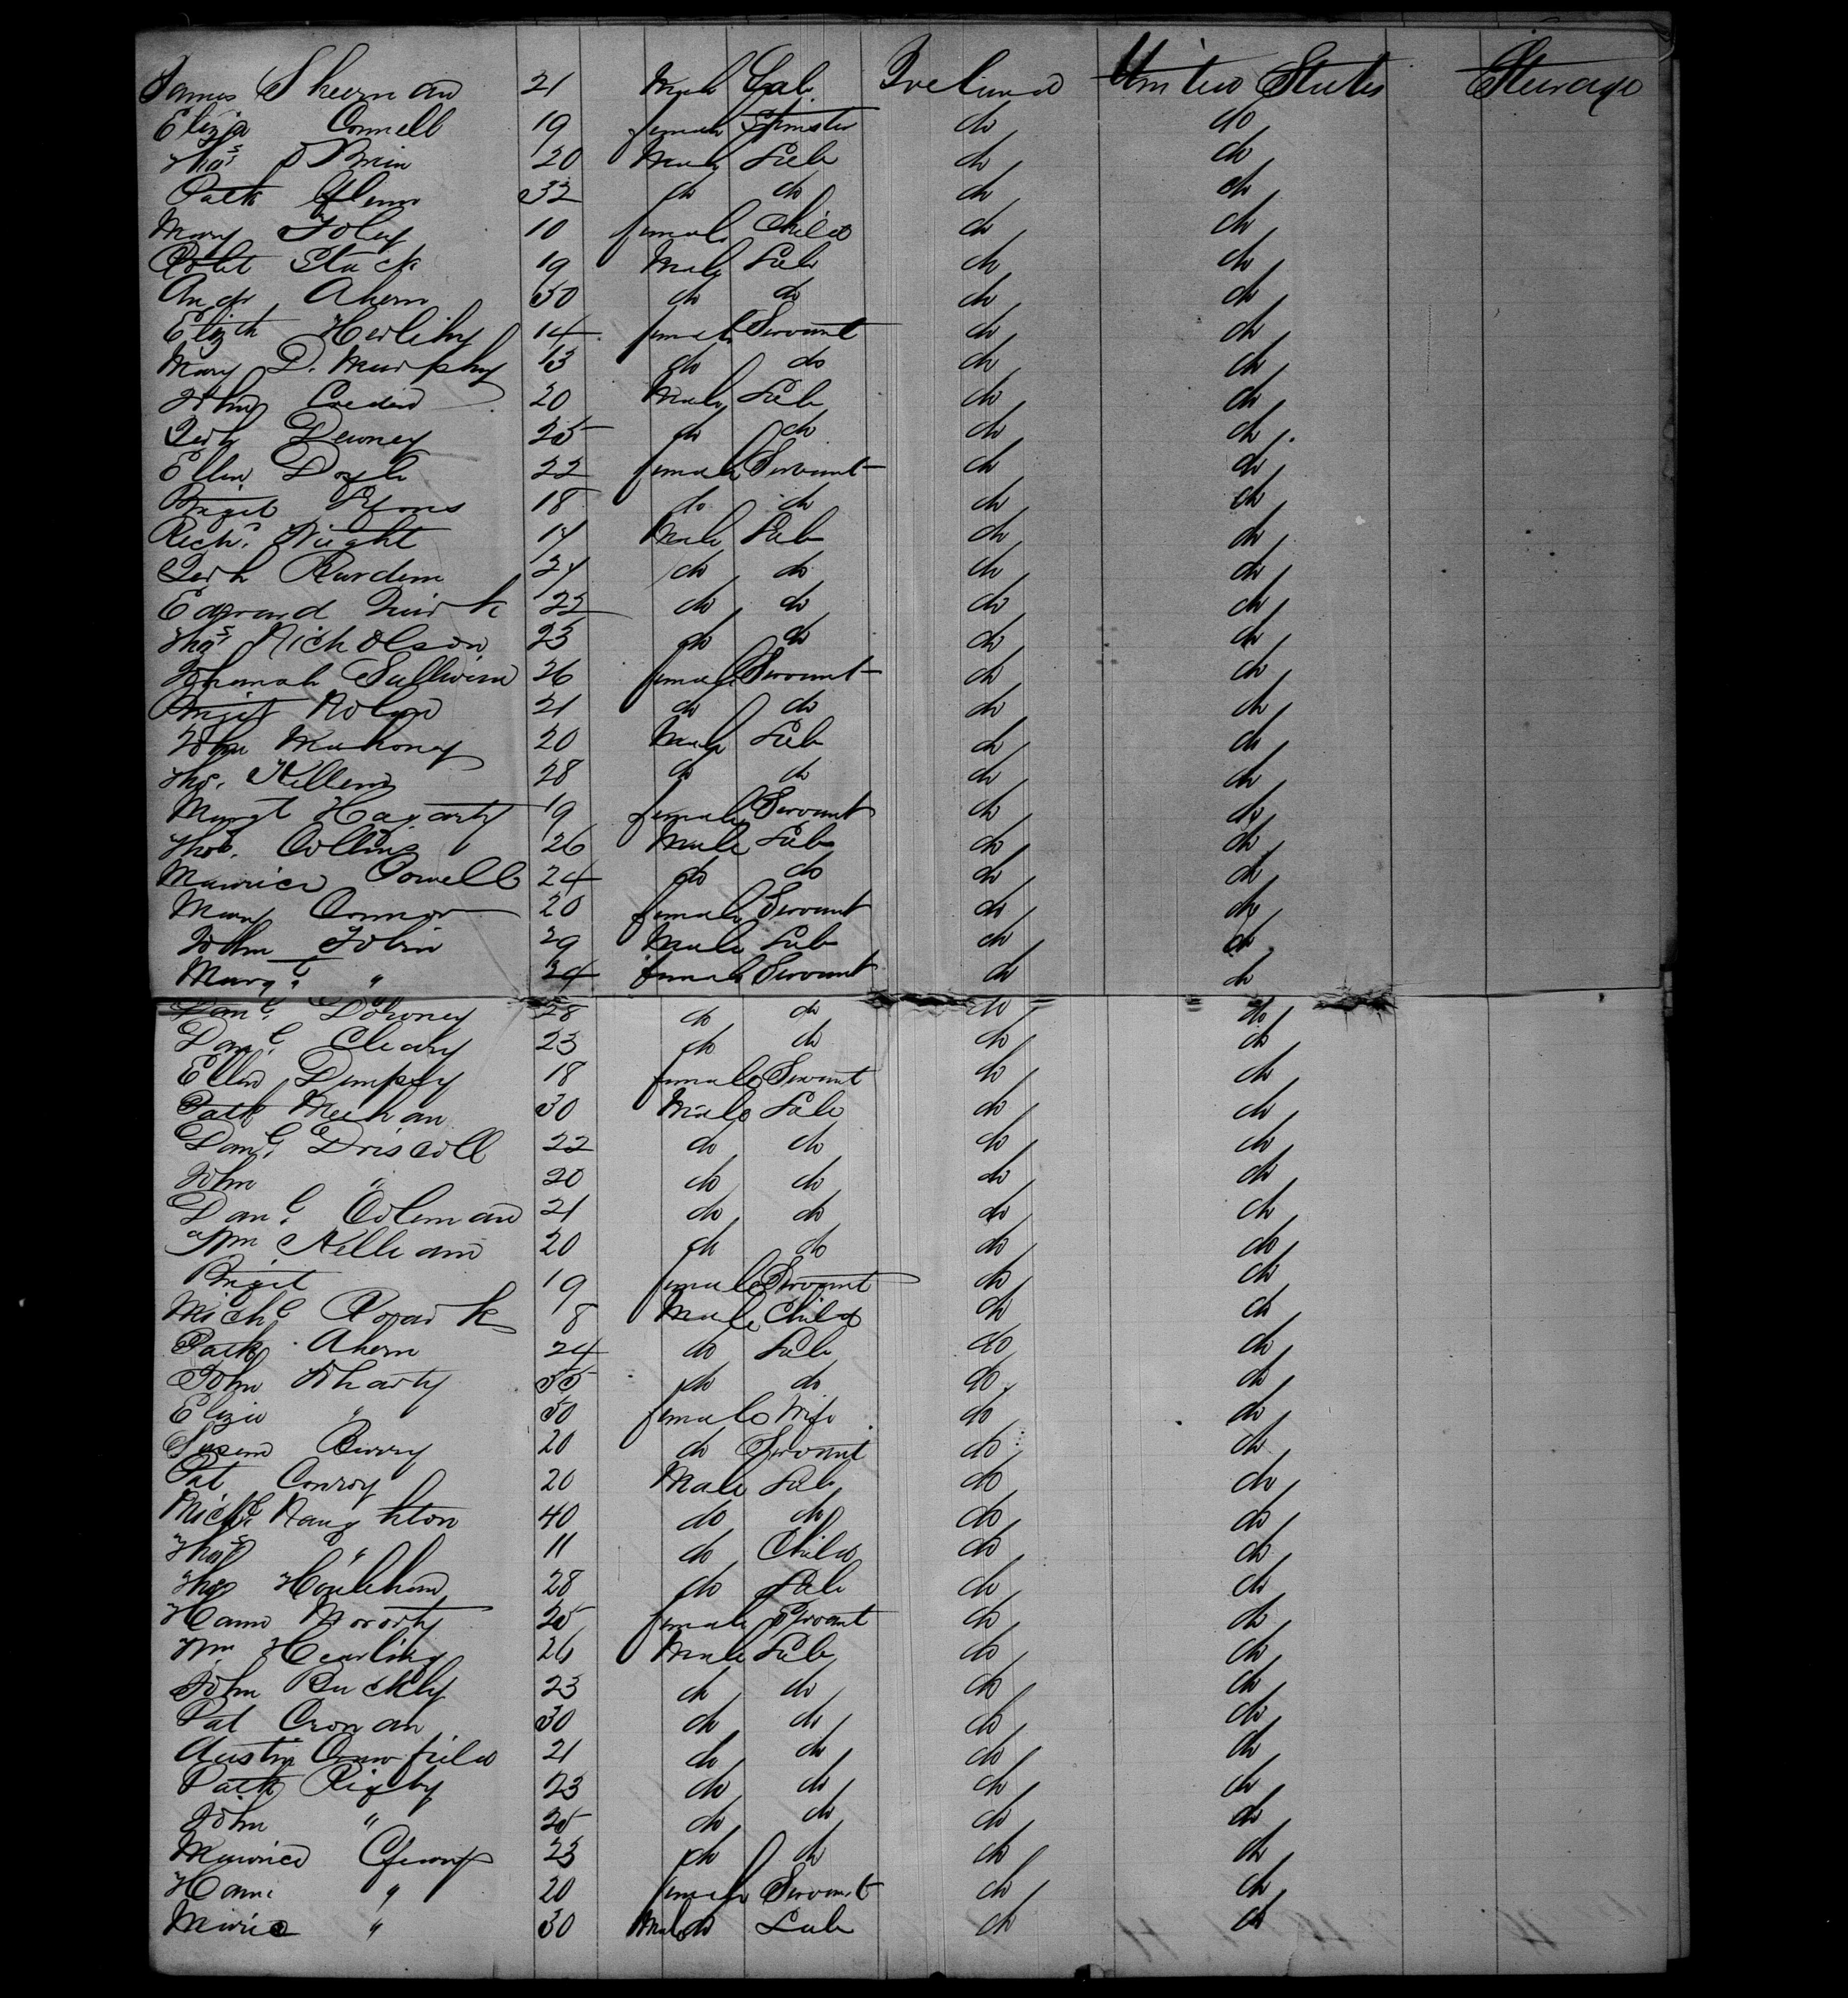 James Sheernan 21 Male Lab. Ireland United States Steerage
Eliza Connell 19 female do do
Thos OBrien 20 Male Lab do do
Patk Glynn 32 do do do do
Mary Foley 10 female Child do do
Robt Stack 19 Male Lab do do
Andw Ahern 30 do do do do
Elizth Herlihy 14 female Servant do do
Mary D. Murphy 13 do do do do
John Creden 20 Male Lab do do
Jerh Downey 25 do do do do
Ellen Doyle 22 female Servant do do
Briget Lyons 18 do do do do
Richd Wright 17 Male Lab do do
Jerh Riordern 24 do do do do
Edmond Quirk 22 do do do do
Thos Nicholson 23 do do do do
Johannah Sullivan 26 female Servant do do
Briget Nolan 21 do do do do
John Mahoney 20 Male Lab do do
Tho. Killen 28 do do do do
Margt Hagarty 19 female Servant do do
Thos. Collins 26 Male Lab do do
Maurice Powell 24 do do do do
Mary Connor 20 female Servant do do
John Tobin 29 Male Lab do do
Margt " 24 female Servant do do
Danl Doroney 28 do do do do
Danl Cleary 23 do do do do
Ellen Dempsy 18 female Servant do do
Patk Meehan 30 Male Lab do do
Danl Driscoll 22 do do do do
John " 20 do do do do
Danl Coleman 21 do do do do
Wm Killeam 20 do do do do
Briget 19 female Servant do do
Michl 8 Male Child do do
Patk Ahern 24 do Lab do do
John Wharty 35 do do do do
Eliza " 30 female Wife do do
Susan Barry 20 do Servant do do
Pat Conroy 20 Male Lab do do
Michl Naughton 40 do do do do
Thos " 11 do Child do do
Thos Houlihan 28 do Lab do do
Hann Mororty 25 female Servant do do
Wm Hearlihy 26 Male Lab do do
John Buckly 23 do do do do
Pat Cronan 30 do do do do
Austin Crawfield 21 do do do do
Patk Rigby 23 do do do do
John " 25 do do do do
Maurice 23 do do do do
Hann " 20 female Servant do do
" 30 Male do Lab do do